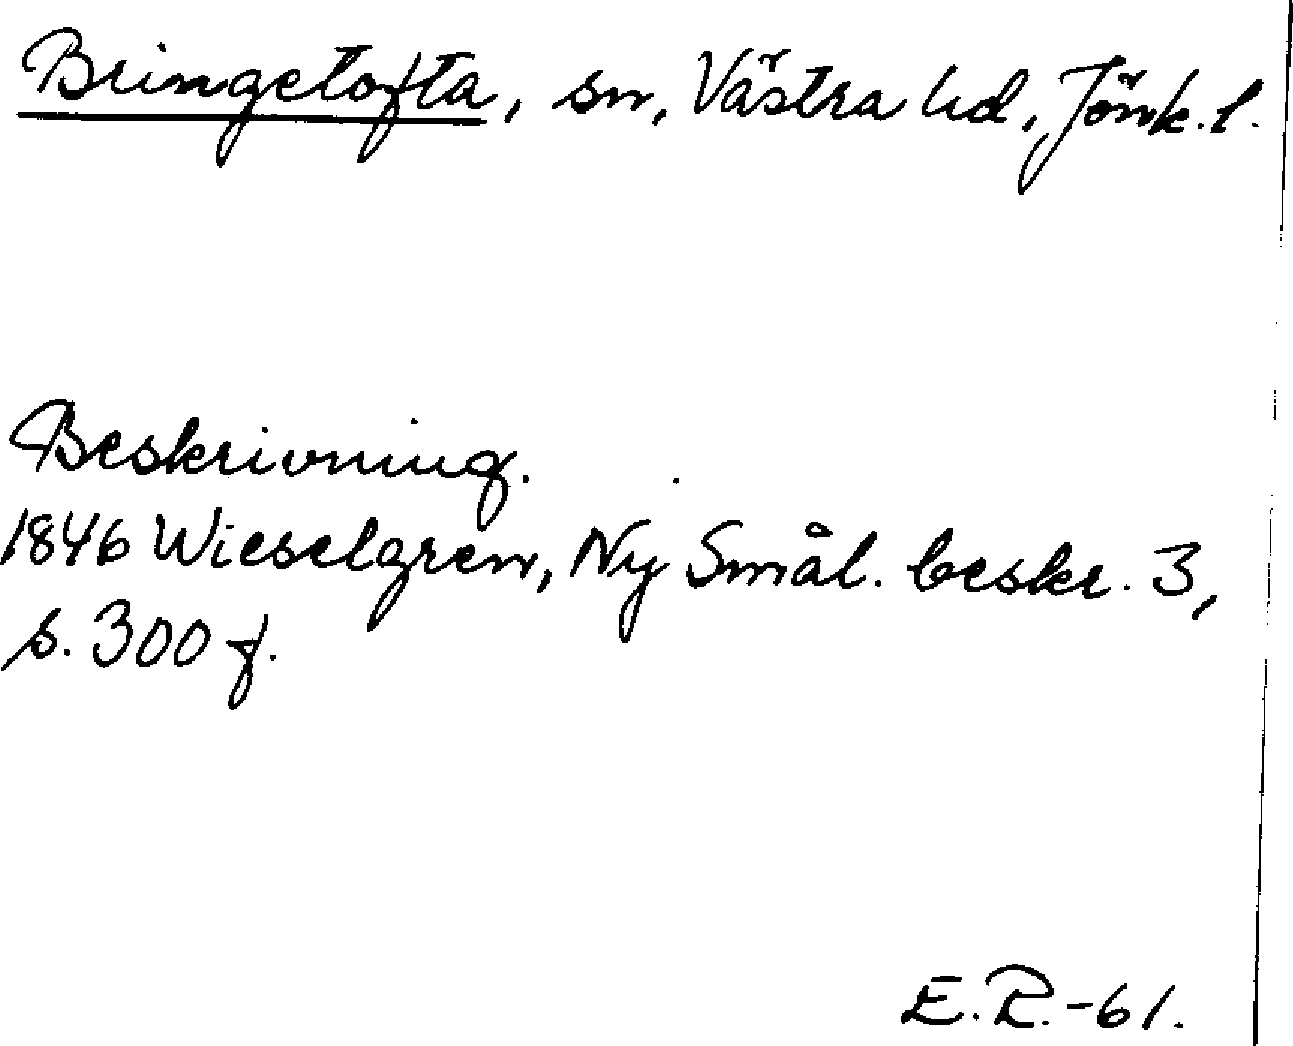 Bringetofta, sn, Västra hd, Jönk. l.
Beskrivning.
1846 Wieselgren, Ny Smål. beskr. 3,
s. 300 f.
E.R.-61.